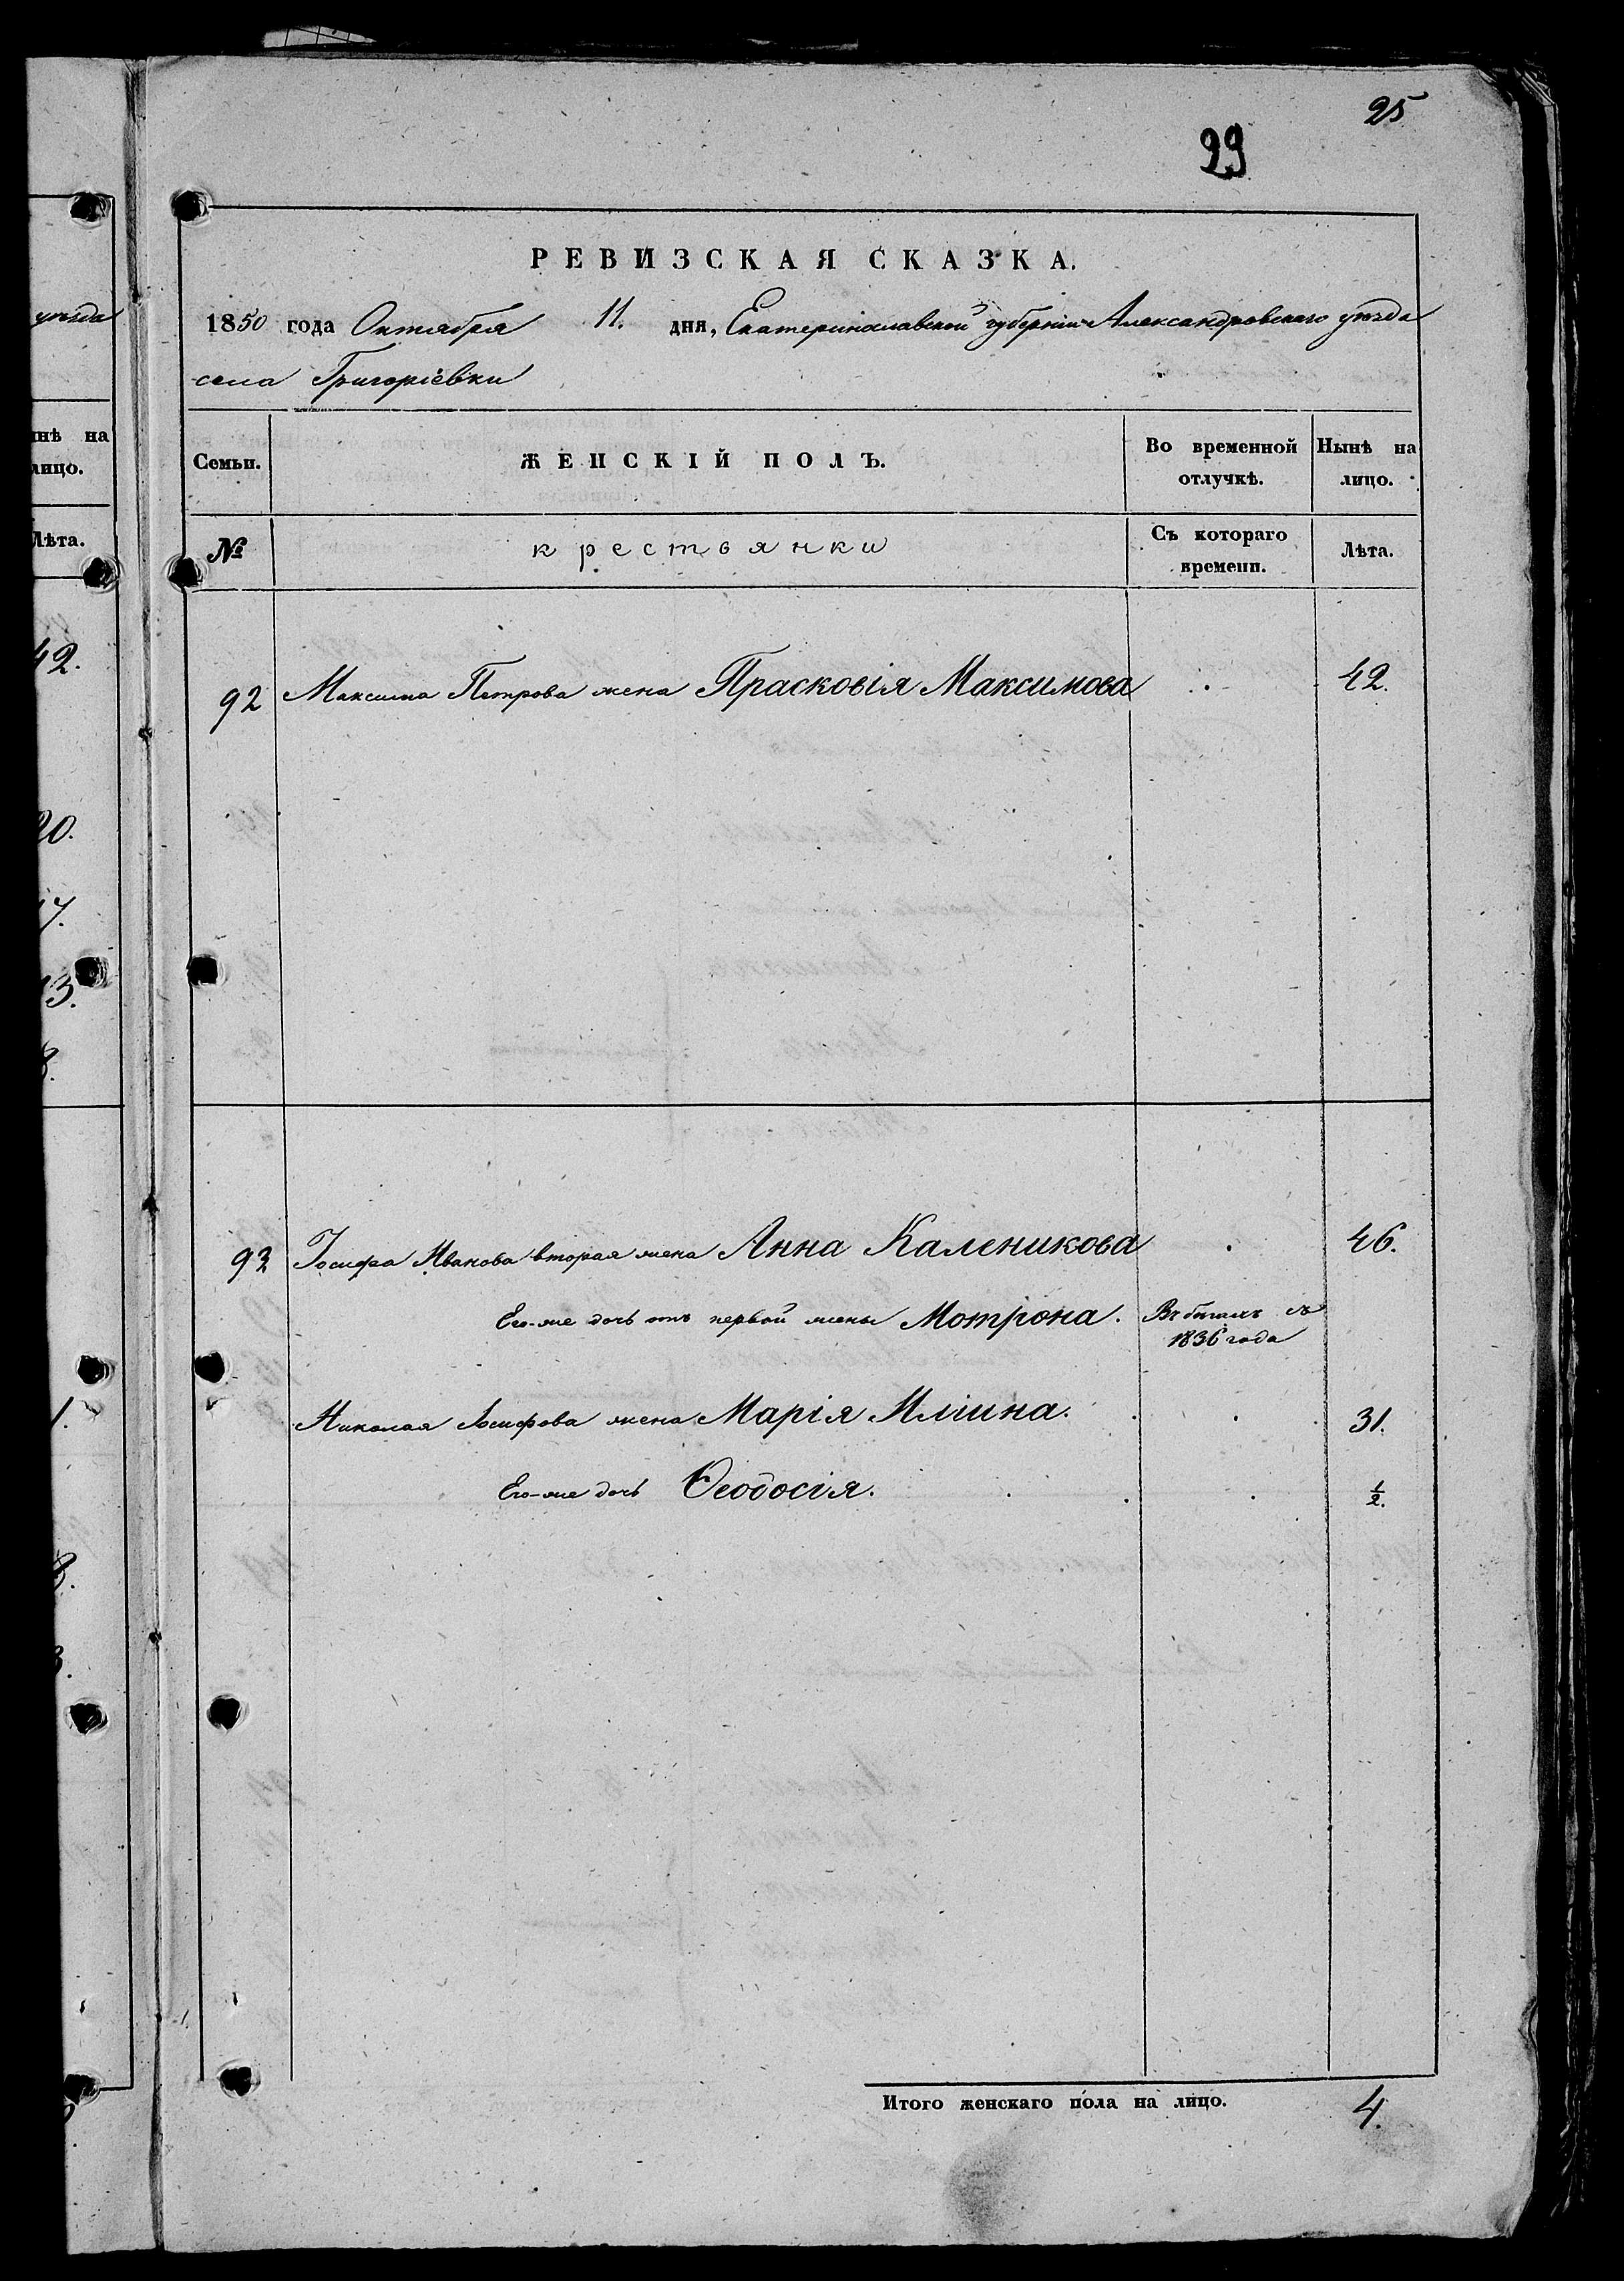 25
29
РЕВИЗСКАЯ СКАЗКА.
1850 года Октября 11. дня, Екатеринославской губернiи Александровскаго уѣзда
села Григорiевки
Семьи. ЖЕНСКIЙ ПОЛЪ. Во временной отлучкѣ. Нынѣ на лицо.
№ крестьянки Съ котораго времени. Лѣта.
92 Максима Петрова жена Прасковiя Максимова 42.
93 Iосифа Иванова вторая жена Анна Каленикова 46.
Его-же дочь отъ первой жены Мотрона. Въ бѣгахъ съ
1836 года
Николая Iосифова жена Марiя Илiина. 31.
Его-же дочь Ѳеодосiя. ½.
Итого женскаго пола на лицо. 4.
уѣзда
нѣ на
лицо.
Лѣта.
42.
20.
17.
13.
8.
1.
8.
3.